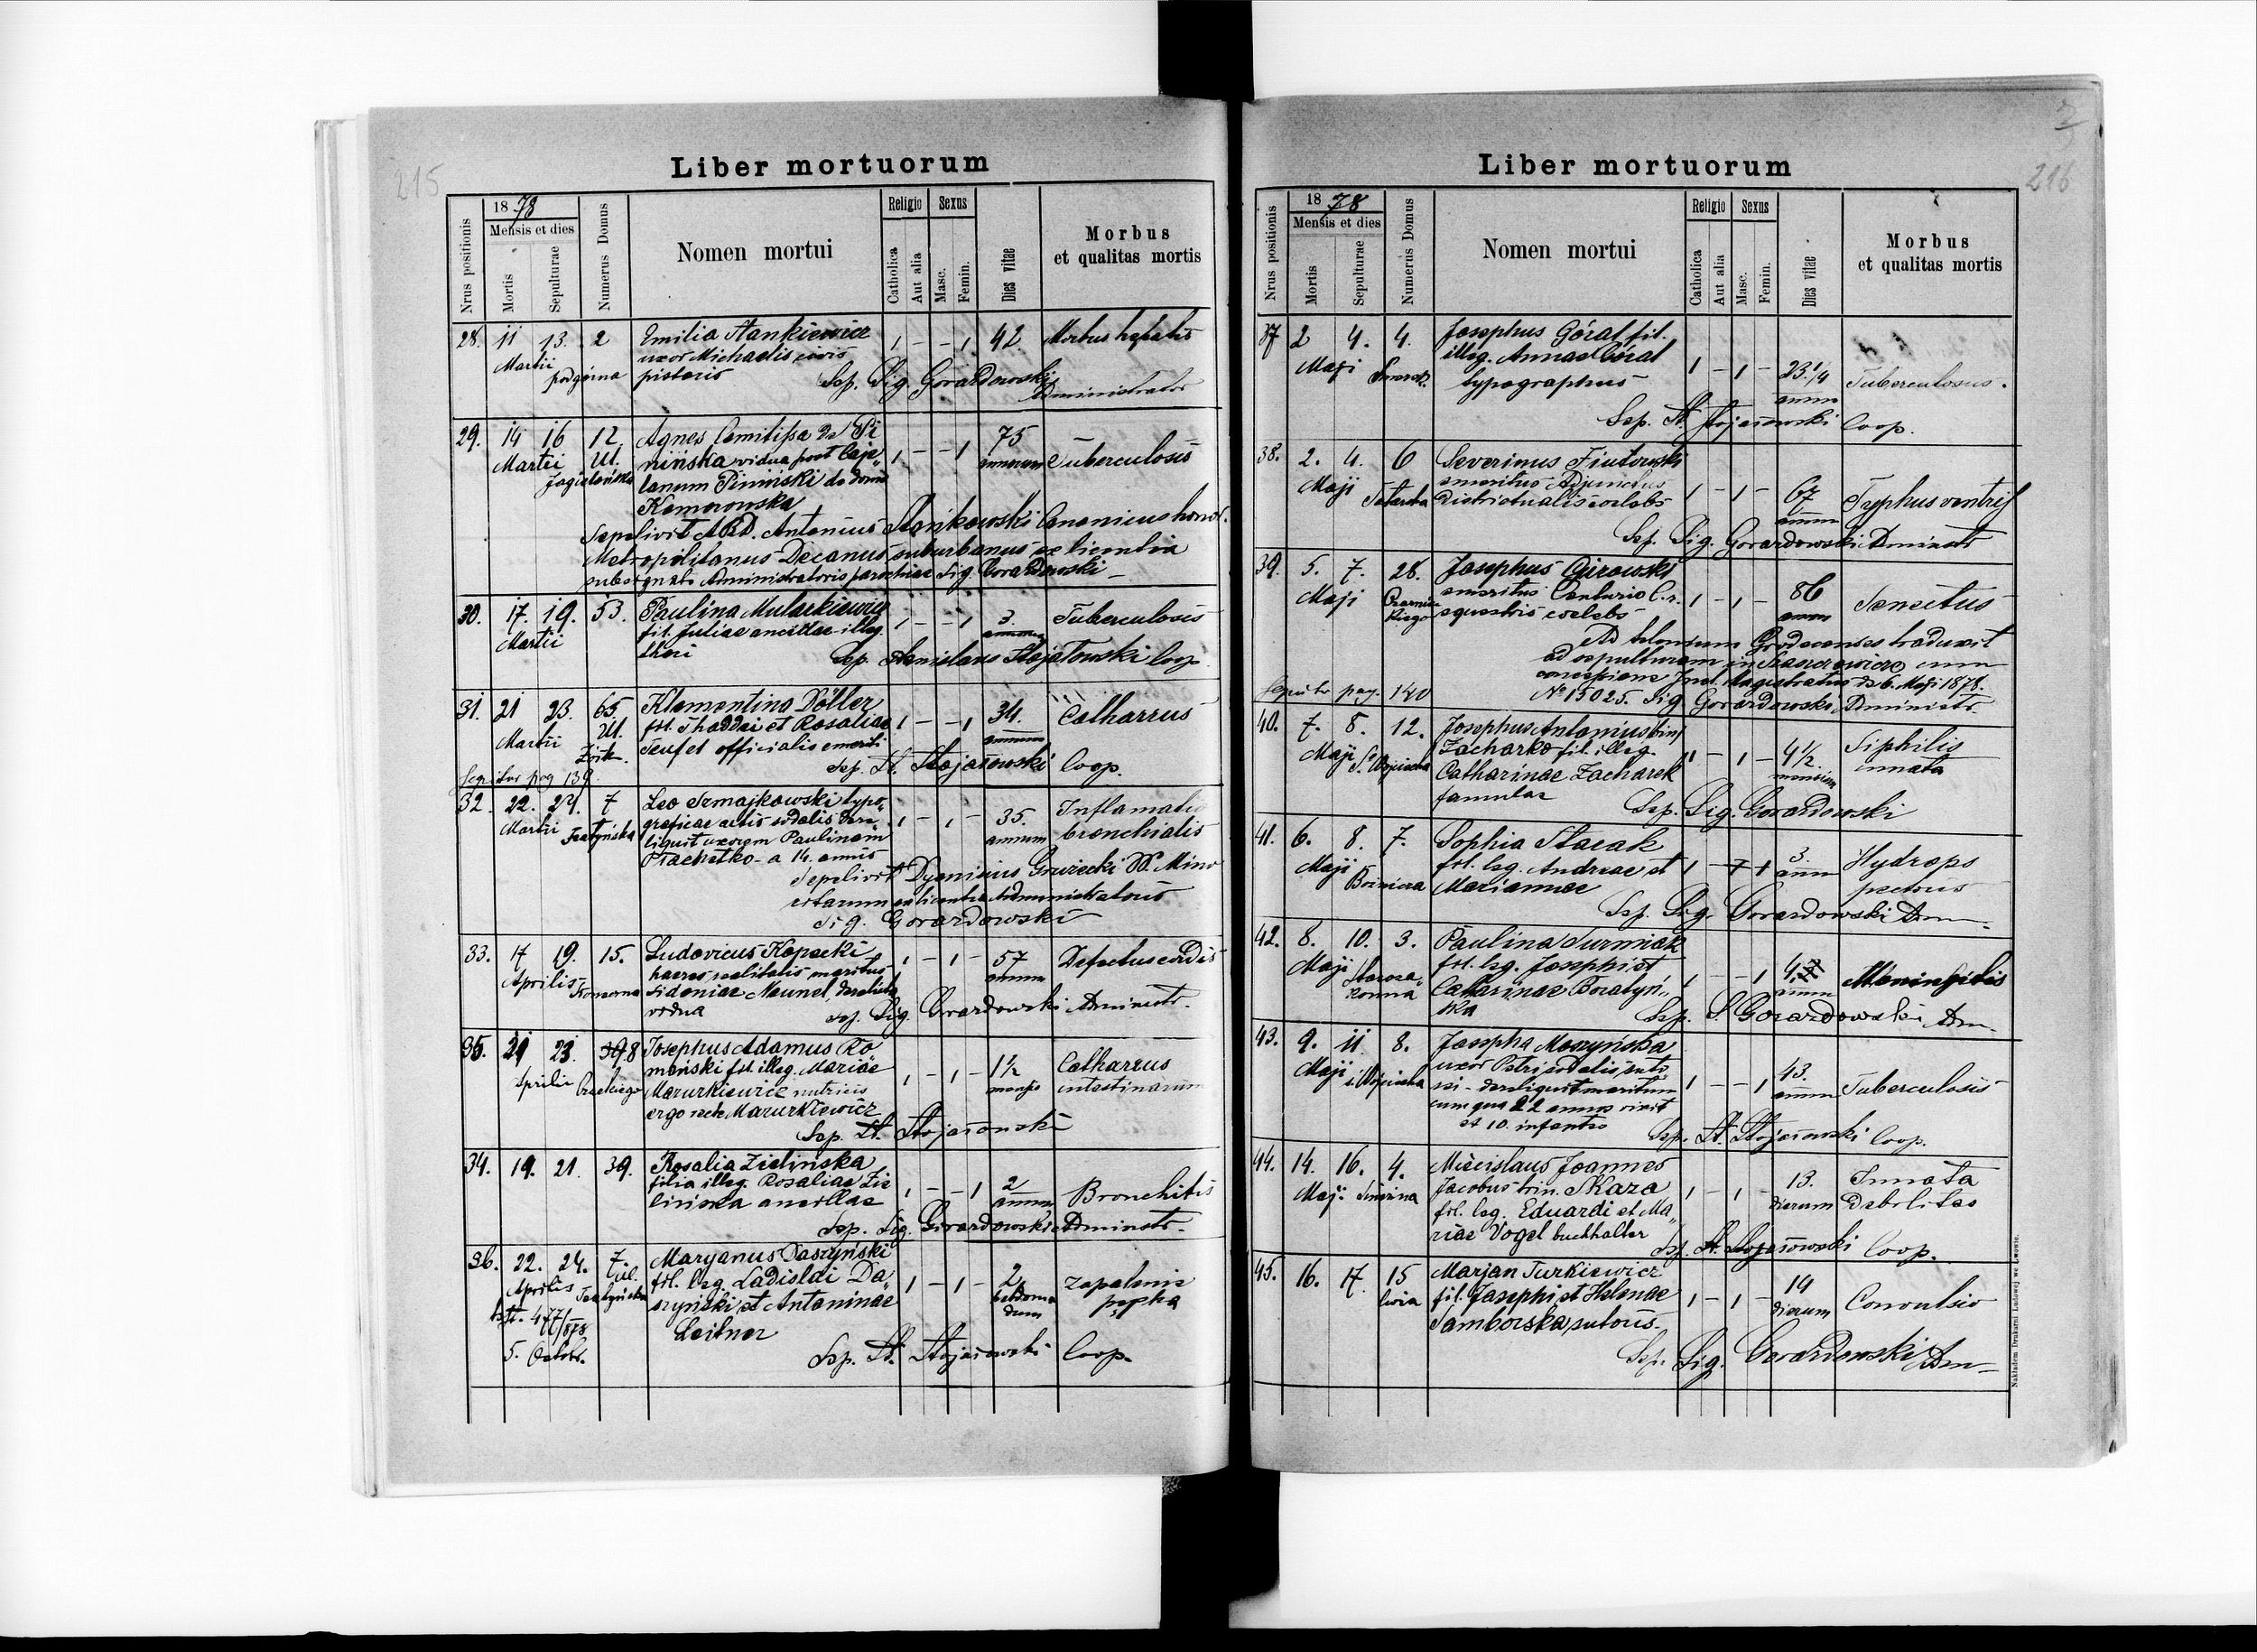 215
Liber mortuorum
Nrus positionis
1878
Mensis et dies
Mortis
Sepulturae
Numerus Domus
Nomen mortui
Religio
Catholica
Aut alia
Sexus
Masc.
Femin.
Dies vitae
Morbus
et qualitas mortis
28. 11 13. 2 Emilia Stankiewicz 1 - - 1 42 Morbus hepatis
Martii uxor Michaelis civis
podgórna pistoris Sep. Sig. Gorazdowski
Administrator
29. 14 16 12 Agnes Comitissa de Pi 75
Martii Ul. nińska vidua post Caje„ 1 - - 1 annorum Tuberculosis
Jagielońska tanum Pininski de domo
Komorowska
Sepelivit ARD. Antonius Mańkowski Canonicus honor.
Metropolitanus Decanus suburbanus ex licentia
Administratoris parochiae Sig. Gorazdowski
30. 17. 19. 53. Paulina Mularkiewicz 1 - - 1 3. Tuberculosis
Martii fil. Juliae ancillae illeg. annorum
thori Sep. Stanislaus Stojałowski Coop.
31. 21 23. 65 Klementina Döller 1 - - 1 34. Catharrus
Martii Ul. fil. Thaddei et Rosaliae annorum
officialis emeriti
Sep. St. Stojałowski Coop.
Sequitur pag 139
32. 22. 24. 7 Leo Szmajkowski typo„ 35. Inflamatio
Martii graficae artis sodalis dere 1 - 1 - annorum bronchialis
liquit uxorem Paulinam
a 14 annis
Sepelivit Dyonisius OO. Mino
ritarum ex licentia Administratoris
Sig. Gorazdowski
33. 17 19. 15. Ludovicus Kopecki 1 - 1 - 57 Defectus cordis
Aprilis haeres realitatis maritus annorum
Sidoniae Neunel, derelicta
vidua Sep. Sig. Gorazdowski Administr.
35. 21 23. 8 Josephus Adamus Ro
Aprilis monski fil. illeg. Mariae 1 - 1 - 1½ Catharrus
Czackiego Mazurkiewicz nutricis mensis intestinarum
ergo recte Mazurkiewicz
Sep. St. Stojałowski
34. 19. 21. 39. Rosalia Zielinska
filia illeg. Rosaliae Zie 1 - - 1 2 Bronchitis
linska ancillae annorum
Sep. Sig. Gorazdowski Administr.
36. 22. 24. 7 Maryanus Daszyński
Aprilis Ul. fil. leg. Ladislai Da„ 1 - 1 - 2 Zapalenie
szyński et Antoninae hebdoma pępka
477/878 Leitner dum
5. Octobr. Sep. St. Stojałowski Coop.
216
Liber mortuorum
Nrus positionis
1878
Mensis et dies
Mortis
Sepulturae
Numerus Domus
Nomen mortui
Religio
Catholica
Aut alia
Sexus
Masc.
Femin.
Dies vitae
Morbus
et qualitas mortis
37 2 4. 4. Josephus Góral fil.
Maji illeg. Annae Góral 1 - 1 - 23.¼ Tuberculosus.
typographus annor
Sep. St. Stojałowski Coop.
38. 2. 4. 6 Severinus Fiutowski
Maji emeritus Adjunctus 1 - 1 - 67 Typhus ventris
Tatarska Districtualis coelebs annor
Sep. Sig. Gorazdowski Administr
39. 5. 7. 28. Josephus
Maji emeritus Centurio C. r. 1 - 1 - 86 Senectus
equestris coelebs annor
Ad telonium Grodecense traduxit
ad sepulturam in cum
concessione Incl. Magistratus de 6. Maji 1878.
Sequitur pag. 140 No 15025. Sig. Gorazdowski Administr.
40. 7. 8. 12. Josephus Antonius bin.
Maji Zacharko fil. illeg. 1 - 1 - 4½ Siphilis
Catharinae Zacharek mensium innata
famulae
Sep. Sig. Gorazdowski
41. 6. 8. 7. Sophia Stasak 3.
Maji fil. leg. Andreae et 1 - - 1 annor Hydrops
Boimiera Mariannae pectoris
Sep. Sig. Gorazdowski Adm
42. 8. 10. 3. Paulina Surmiak
Maji fil. leg. Josephi et 1 - - 1 4 Meningitis
Catharinae Boratyń„ annor
ska Sep. S. Gorazdowski Adm.
43. 9. 11 8. Josepha Moszyńska
Maji uxor Petri sodalis suto 1 - - 1 43. Tuberculosis
S. Wojciecha ri - dereliquit maritum annor
cum quo 22 annos vixit
et 10. infantes Sep. St. Stojałowski Coop.
44. 14. 16. 4. Miecislaus Joannes 13. Innata
Maji Jacobus trin. Skaza 1 - 1 - dierum Debilitas
fil. leg. Eduardi et Ma„
riae Vogel buchhalter Sep. St. Stojałowski Coop.
45. 16. 17. 15 Marjan Turkiewicz 14
Lwia fil. Josephi et Helenae 1 - 1 - dierum Convulsio
Samborska, sutoris.
Sep. Sig. Gorazdowski Adm
Nakładem Drukarni Ludowej we Lwowie.